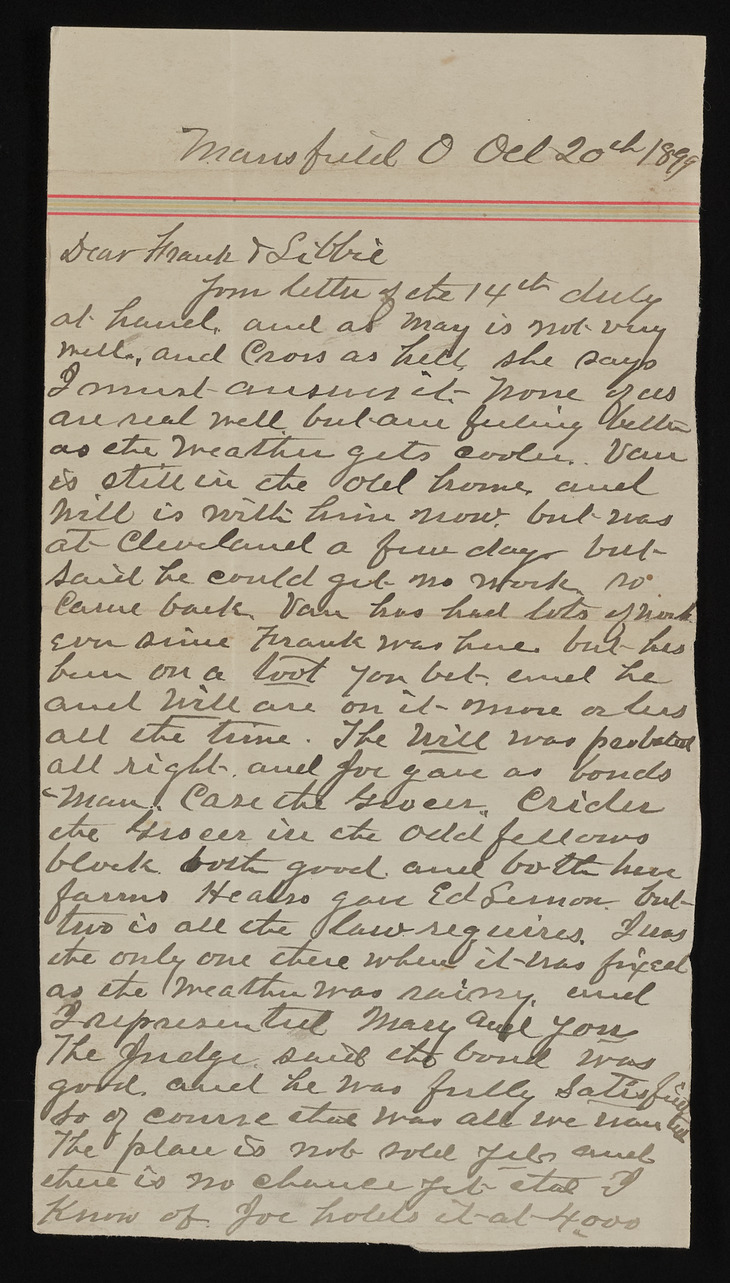 Mansfield O Oct 20th 1899
Dear Frank & Libbie
Your letter of the 14th duly
at hand. and as May is not very
well, and Cross as hell, she says
I must answer it- None of us
are real well but are feeling better
as the Weather gets cooler. Van
is still in the old home, and
Will is with him now. but was
at Cleveland a few days but-
said he could get no work, so
came back. Van has had lots of work
ever since Frank was here. but has
been on a toot you bet. and he
and Will are on it- more or less
all the time. The Will was probated
all right. and Joe gave as bonds
Man. Case the Grocer. Crider
the Grocer in the Oddfellows
block. both good and both have
farms He also gave Ed Lemon. but-
two is all the law requires. I was
the only one there when it was fixed
as the Weather was rainy, and
I represented Mary and you
The Judge said the bond was
good and he was fully satisfied
So of course that was all we wanted
The place is not sold yet and
there is no chance yet that I
Know of. Joe holds it at 4,000